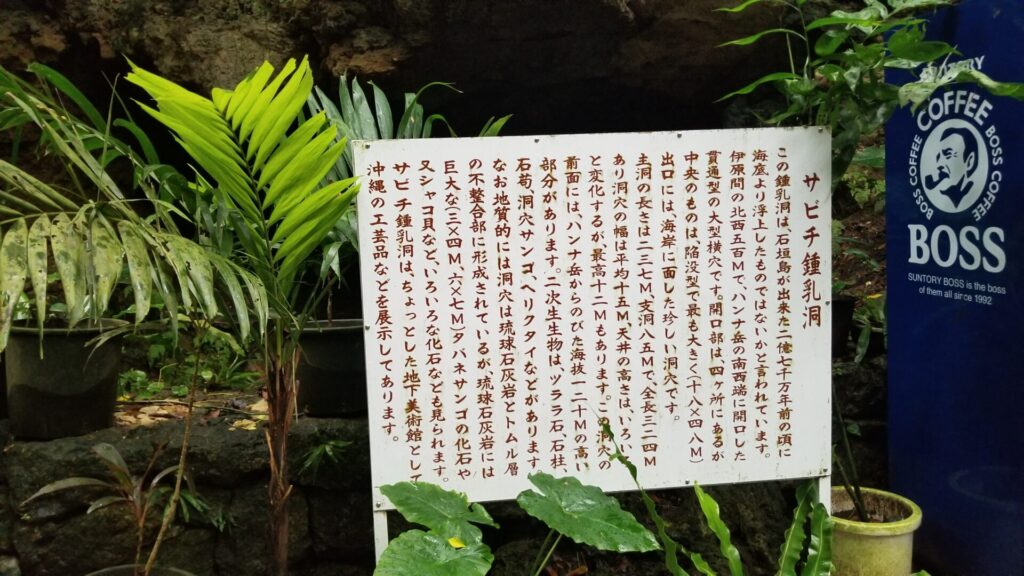 サビチ鍾乳洞
この鍾乳洞は、石垣島が出来た二億七千万年前の頃に
海底より浮上したものではないかと言われています。
伊原間の北西五百Mで、ハンナ岳の南西端に開口した
貫通型の大型横穴です。開口部は、四ヶ所にあるが
中央のものは陥没型で最も大きく(十八×四八M)
出口には、海岸に面した珍しい洞穴です。
主洞の長さは二三七M、支洞八五Mで、全長三二四M
あり洞穴の幅は平均十五M、天井の高さは、いろいろ
と変化するが、最高十二Mもあります。この洞穴の
前面には、ハンナ岳からのびた海抜一二十Mの高い
部分があります。二次生生物は、ツララ石、石柱、
石筍、洞穴サンゴ、ヘリクタイトなどがあります
なお地質的には洞穴は琉球石灰岩とトムル層
の不整合部に形成されているが、琉球石灰岩には
巨大な三×四M、六×七M)タバネサンゴの化石や
又シャコ貝など、いろいろな化石なども見られます。
サビチ鍾乳洞は、ちょっとした地下美術館として
沖縄の工芸品などを展示してあります。
SUNTORY
COFFEE
BOSS COFFEE
BOSS COFFEE
BOSS
SUNTORY BOSS is the boss
of them all since 1992